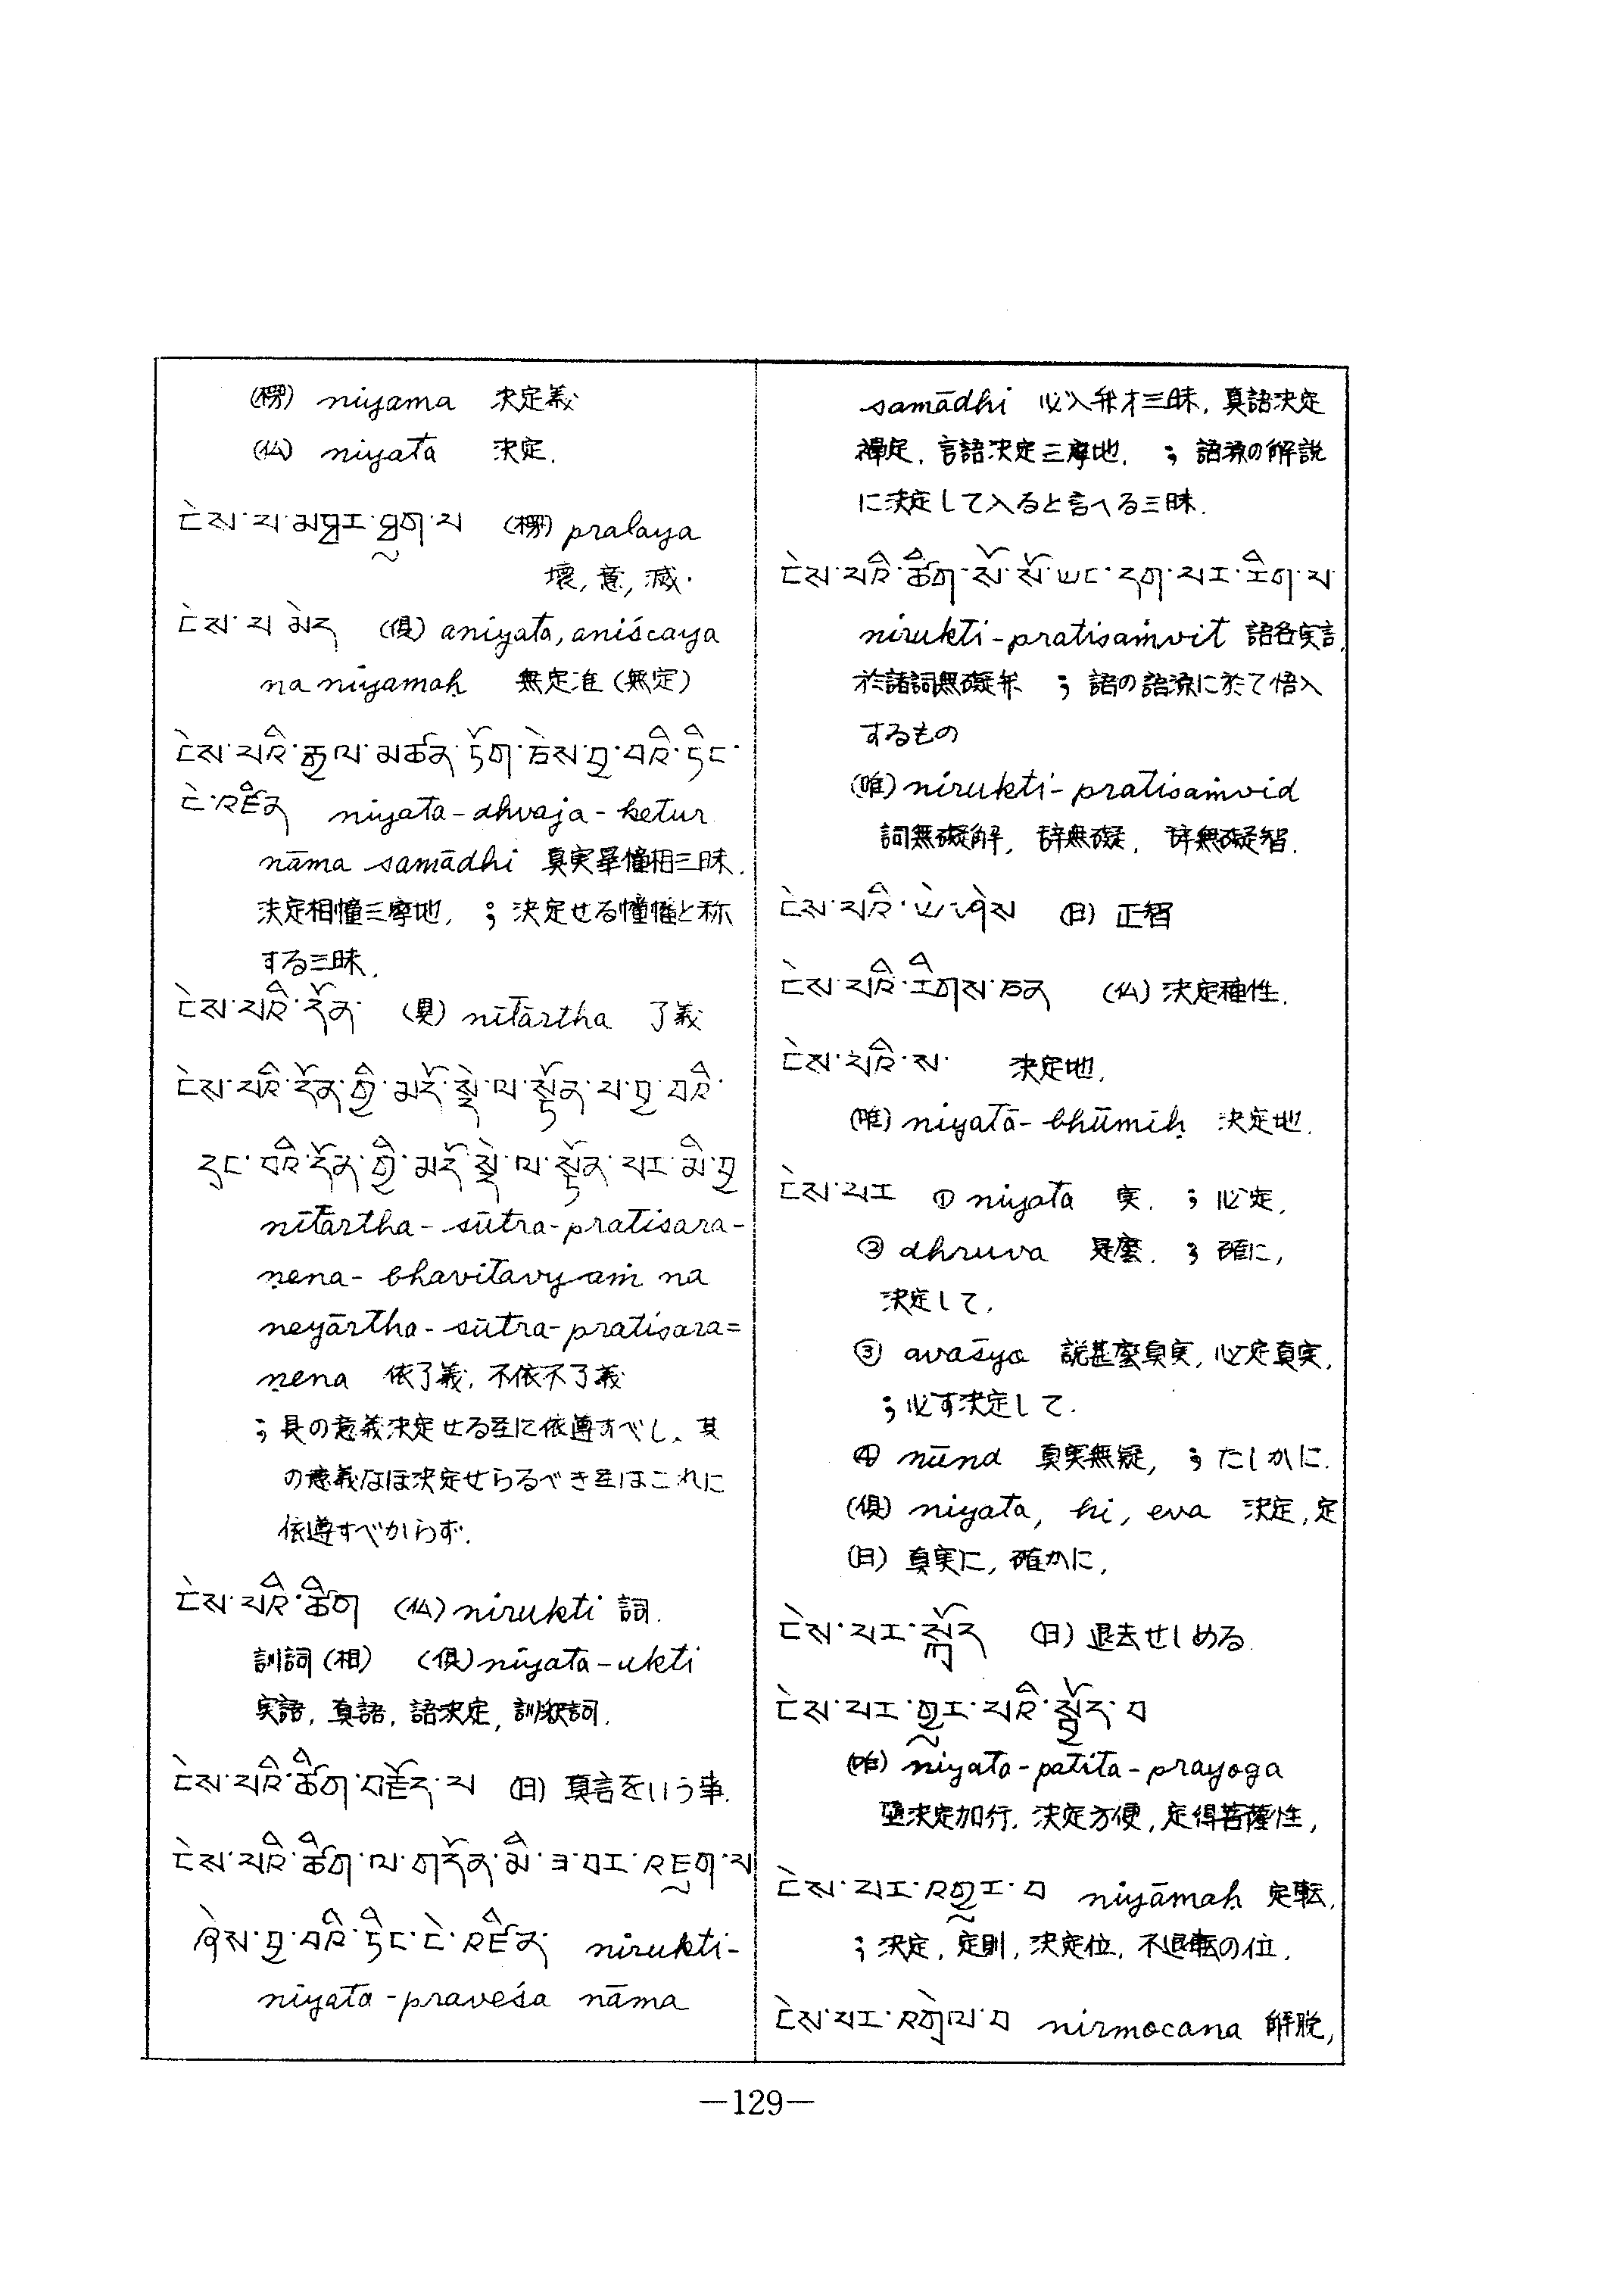 (楞) niyama 決定義
(仏) niyata 決定.
ངེས་པ་མཐར་ཐུག་པ (楞) pralaya
壞, 意, 滅.
ངེས་པ མེད (倶) aniyata, aniścaya
na niyamaḥ 無定准 (無定)
ངེས་པའི་རྒྱལ་མཚན་ཏོག་ཅེས་བྱ་བའི་ཏིང་
ངེ་འཛིན niyata-dhvaja-ketur
nāma samādhi 真実畢憧相三昧.
決定相憧三摩地, ; 決定せる憧幡と称
する三昧.
ངེས་པའི་དོན་ (見) nītārtha 了義
ངེས་པའི་དོན་གྱི་མདོ་སྡེ་ལ་སྟོན་པ་བྱ་བའི་
དང་བའི་དོན་གྱི་མདོ་སྡེ་ལ་སྟོན་པར་མི་བྱ
nītārtha-sūtra-pratisara-
ṇena-bhavitavyaṁ na
neyārtha-sūtra-pratisara=
ṇena 依了義, 不依不了義
; 其の意義決定せる至に依遵すべし、其
の意義なほ決定せらるべき至はこれに
依遵すべからず.
ངེས་པའི་ཚིག (仏) nirukti 詞.
訓詞 (相) (倶) niyata-ukti
実語, 真語, 語決定, 訓釈詞.
ངེས་པའི་ཚིག་བརྗོད་པ (日) 真言をいう事.
ངེས་པའི་ཚིག་ལ་གདོན་མི་ཟ་བར་འཇུག་པ
ཞེས་བྱ་བའི་ཏིང་ངེ་འཛིན་ nirukti-
niyata-praveśa nāma
samādhi 必入弁才三昧, 真語決定
禅定, 言語決定三摩地, ; 語源の解説
に決定して入ると言へる三昧.
ངེས་པའི་ཚིག་སོ་སོ་ཡང་དག་པར་རིག་པ
nirukti-pratisaṁvit 語各実言,
於諸詞無礙弁 ; 語の語源に於て悟入
するもの
(唯) nirukti-pratisaṁvid
詞無礙解, 辞無礙, 辞無礙智.
ངེས་པའི་ཡེ་ཤེས (日) 正智
ངེས་པའི་རིགས་ཅན (仏) 決定種性.
ངེས་པའི་ས་ 決定地,
(唯) niyatā-bhūmiḥ 決定地.
ངེས་པར ① niyata 実. ; 必定,
② dhruva 是麼. ; 確に,
決定して,
③ avaśya 説甚麼真実, 必定真実,
; 必す決定して.
④ nūna 真実無疑, ; たしかに.
(倶) niyata, hi, eva 決定, 定
(日) 真実に, 確かに,
ངེས་པར་སྐྲོད (日) 退去せしめる.
ངེས་པར་གྱུར་པའི་སྦྱོར་བ
(唯) niyata-patita-prayoga
墮決定加行. 決定方便, 定得菩薩性,
ངེས་པར་འགྱུར་བ niyāmaḥ 定転.
; 決定, 定則, 決定位, 不退転の位.
ངེས་པར་འགྲེལ་བ nirmocana 解脱,
—129—